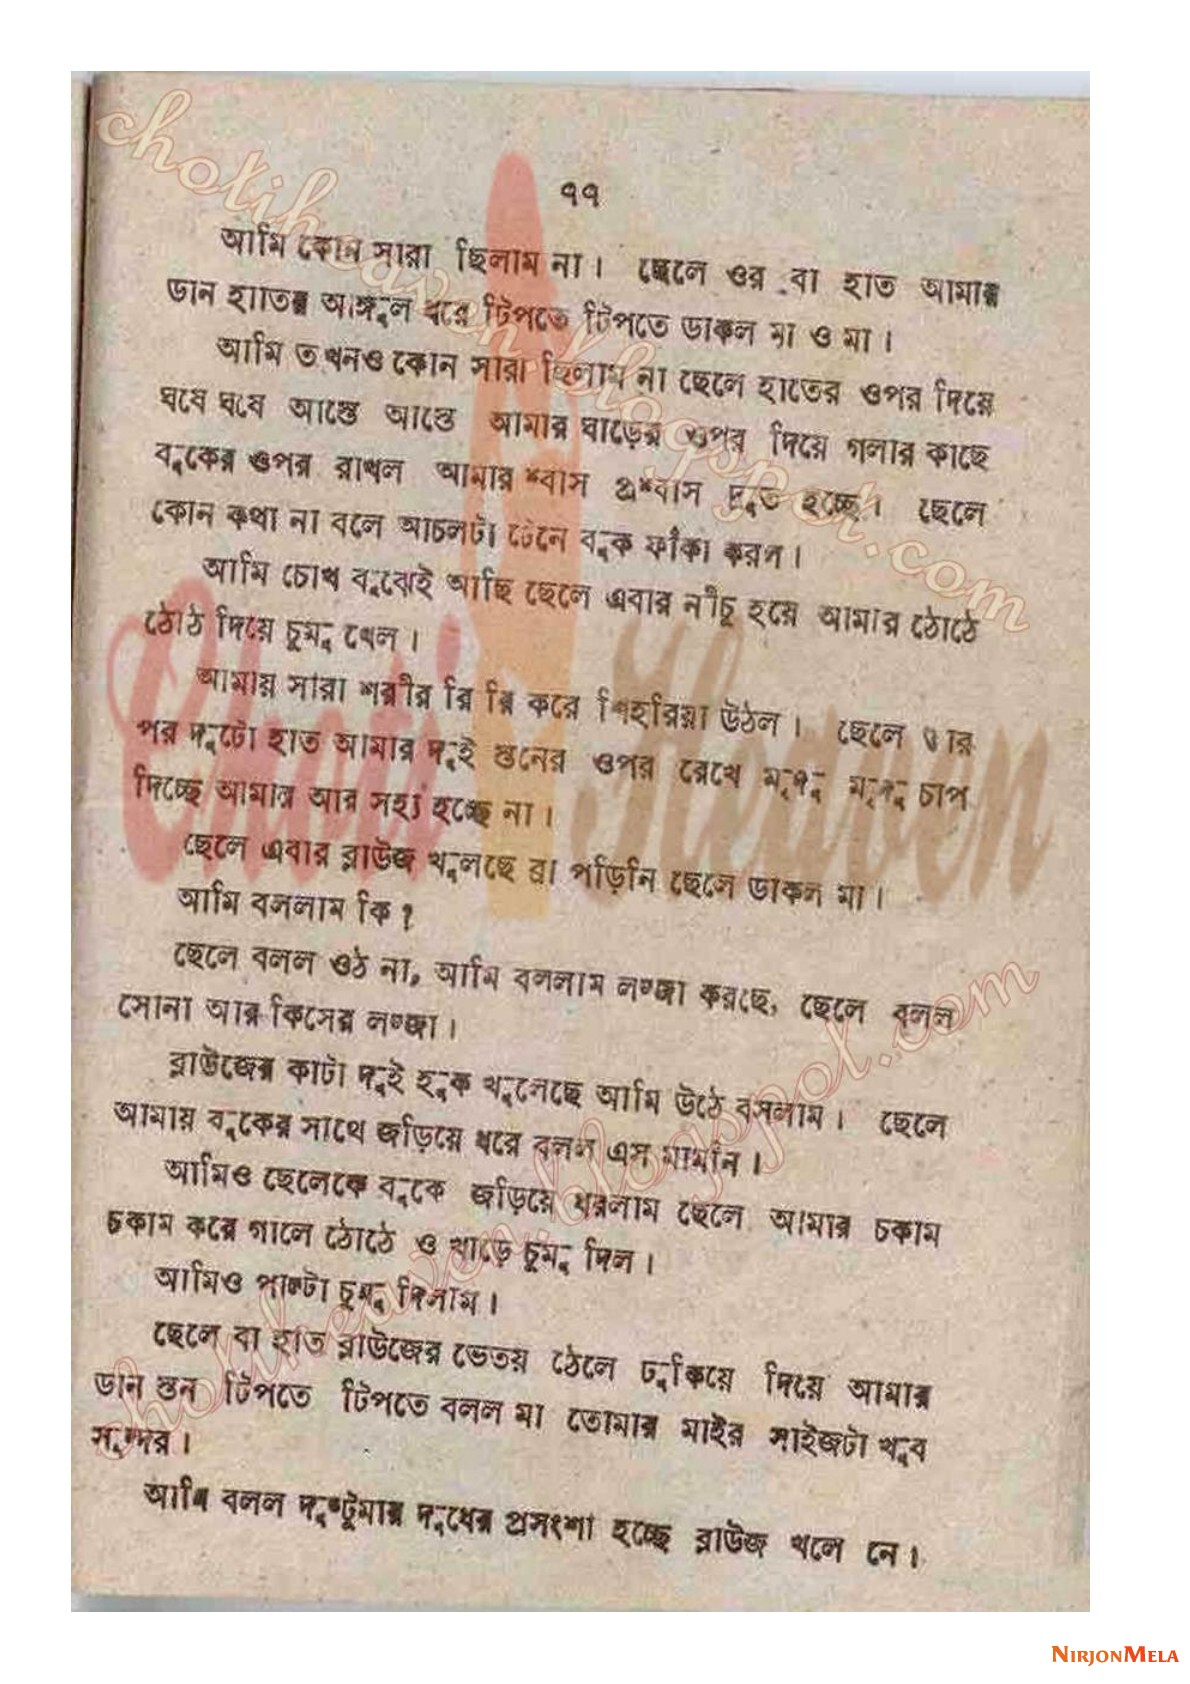 chotiheaven.blogspot.com
৭৭
আমি কোন সারা ছিলাম না। ছেলে ওর বা হাত আমার
ডান হাতের আঙ্গুল ধরে টিপতে টিপতে ডাকল মা ও মা।
আমি তখনও কোন সারা ছিলাম না ছেলে হাতের ওপর দিয়ে
ঘষে ঘষে আস্তে আস্তে আমার ঘাড়ের ওপর দিয়ে গলার কাছে
বুকের ওপর রাখল আমার শ্বাস প্রশ্বাস দ্রুত হচ্ছে। ছেলে
কোন কথা না বলে আচলটা টেনে বুক ফাঁকা করল।
আমি চোখ বুঝেই আছি ছেলে এবার নীচু হয়ে আমার ঠোঠে
ঠোঠ দিয়ে চুমু খেল।
আমায় সারা শরীর রি রি করে শিহরিয়া উঠল। ছেলে তার
পর দুটো হাত আমার দুই স্তনের ওপর রেখে মৃদু মৃদু চাপ
দিচ্ছে আমার আর সহ্য হচ্ছে না।
ছেলে এবার ব্লাউজ খুলছে ব্রা পড়িনি ছেলে ডাকল মা।
আমি বললাম কি?
ছেলে বলল ওঠ না, আমি বললাম লজ্জা করছে, ছেলে বলল
সোনা আর কিসের লজ্জা।
ব্লাউজের কাটা দুই হুক খুলেছে আমি উঠে বসলাম। ছেলে
আমায় বুকের সাথে জড়িয়ে ধরে বলল এস মামনি।
আমিও ছেলেকে বুকে জড়িয়ে ধরলাম ছেলে আমার চকাম
চকাম করে গালে ঠোঠে ও ঘাড়ে চুমু দিল।
আমিও পাল্টা চুমু দিলাম।
ছেলে বা হাত ব্লাউজের ভেতয় ঠেলে ঢুকিয়ে দিয়ে আমার
ডান স্তন টিপতে টিপতে বলল মা তোমার মাইর সাইজটা খুব
সুন্দর।
আমি বলল দুষ্টুমার দুধের প্রসংশা হচ্ছে ব্লাউজ খলে নে।
Choti Heaven
chotiheaven.blogspot.com
NIRJONMELA